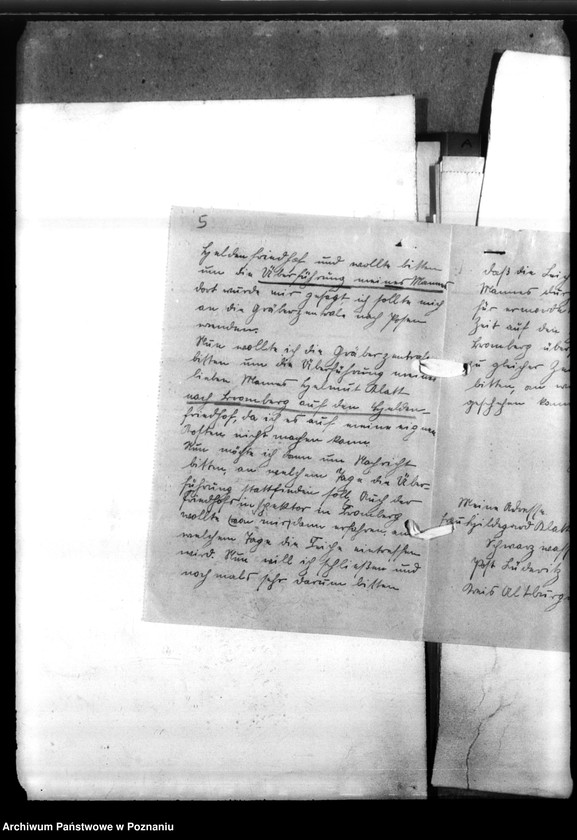 5
Heldenfriedhof und wollte bitten
um die Überführung meines Mannes
dort wurde mir gesagt ich sollte mich
an die Gräberzentrale nach Posen
wenden.
Nun wollte ich die Gräberzentrale
bitten um die Überführung meines
lieben Mannes Helmut Klatt
nach Bromberg auf den Helden-
friedhof, da ich es auf meine eignen
Kosten nicht machen kann.
Nun möchte ich dann um Nachricht
bitten, an welchem Tage die Über-
führung stattfinden soll. Auch der
Friedhofsinspektor in Bromberg
wollte von mir dann erfahren, an
welchem Tage die Leiche eintreffen
wird. Nun will ich schließen und
nochmals sehr darum bitten
daß die Leich
Mannes
für ermordet
Zeit auf den
Bromberg über
zu gleicher Ze
bitten, an
geschehen kann
Meine Adresse
Frau Hildegard Klatt
Schwarzwass
Post Lüderitz
Kreis Altburg
Archiwum Państwowe w Poznaniu